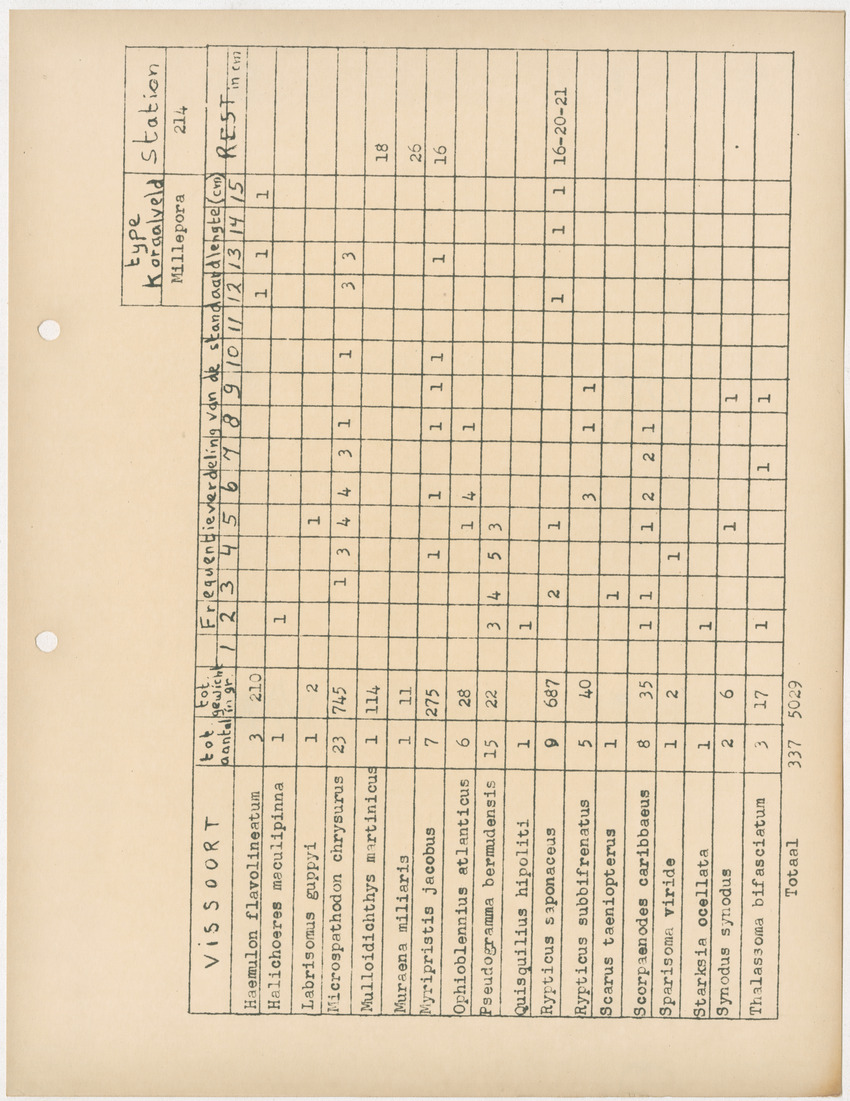 type Koraalveld Station
Millepora 214
VISSOORT tot. aantal tot. gewicht in gr. Frequentieverdeling van de standaardlengte (cm) REST in cm
1 2 3 4 5 6 7 8 9 10 11 12 13 14 15
Haemulon flavolineatum 3 210 1 1 1
Halichoeres maculipinna 1 1
Labrisomus guppyi 1 2 1
Microspathodon chrysurus 23 745 1 3 4 4 3 1 1 3 3
Mulloidichthys martinicus 1 114 18
Muraena miliaris 1 11 26
Myripristis jacobus 7 275 1 1 1 1 1 1 16
Ophioblennius atlanticus 6 28 1 4 1
Pseudogramma bermudensis 15 22 3 4 5 3
Quisquilius hipoliti 1 1
Rypticus saponaceus 9 687 2 1 1 1 1 16-20-21
Rypticus subbifrenatus 5 40 3 1 1
Scarus taeniopterus 1 1
Scorpaenodes caribbaeus 8 35 1 1 1 2 2 1
Sparisoma viride 1 2 1
Starksia ocellata 1 1
Synodus synodus 2 6 1 1
Thalassoma bifasciatum 3 17 1 1 1
Totaal 337 5029